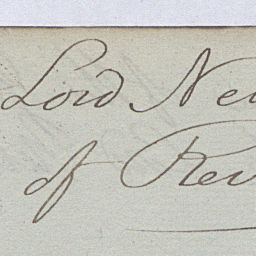 Lord Ne
of Rev